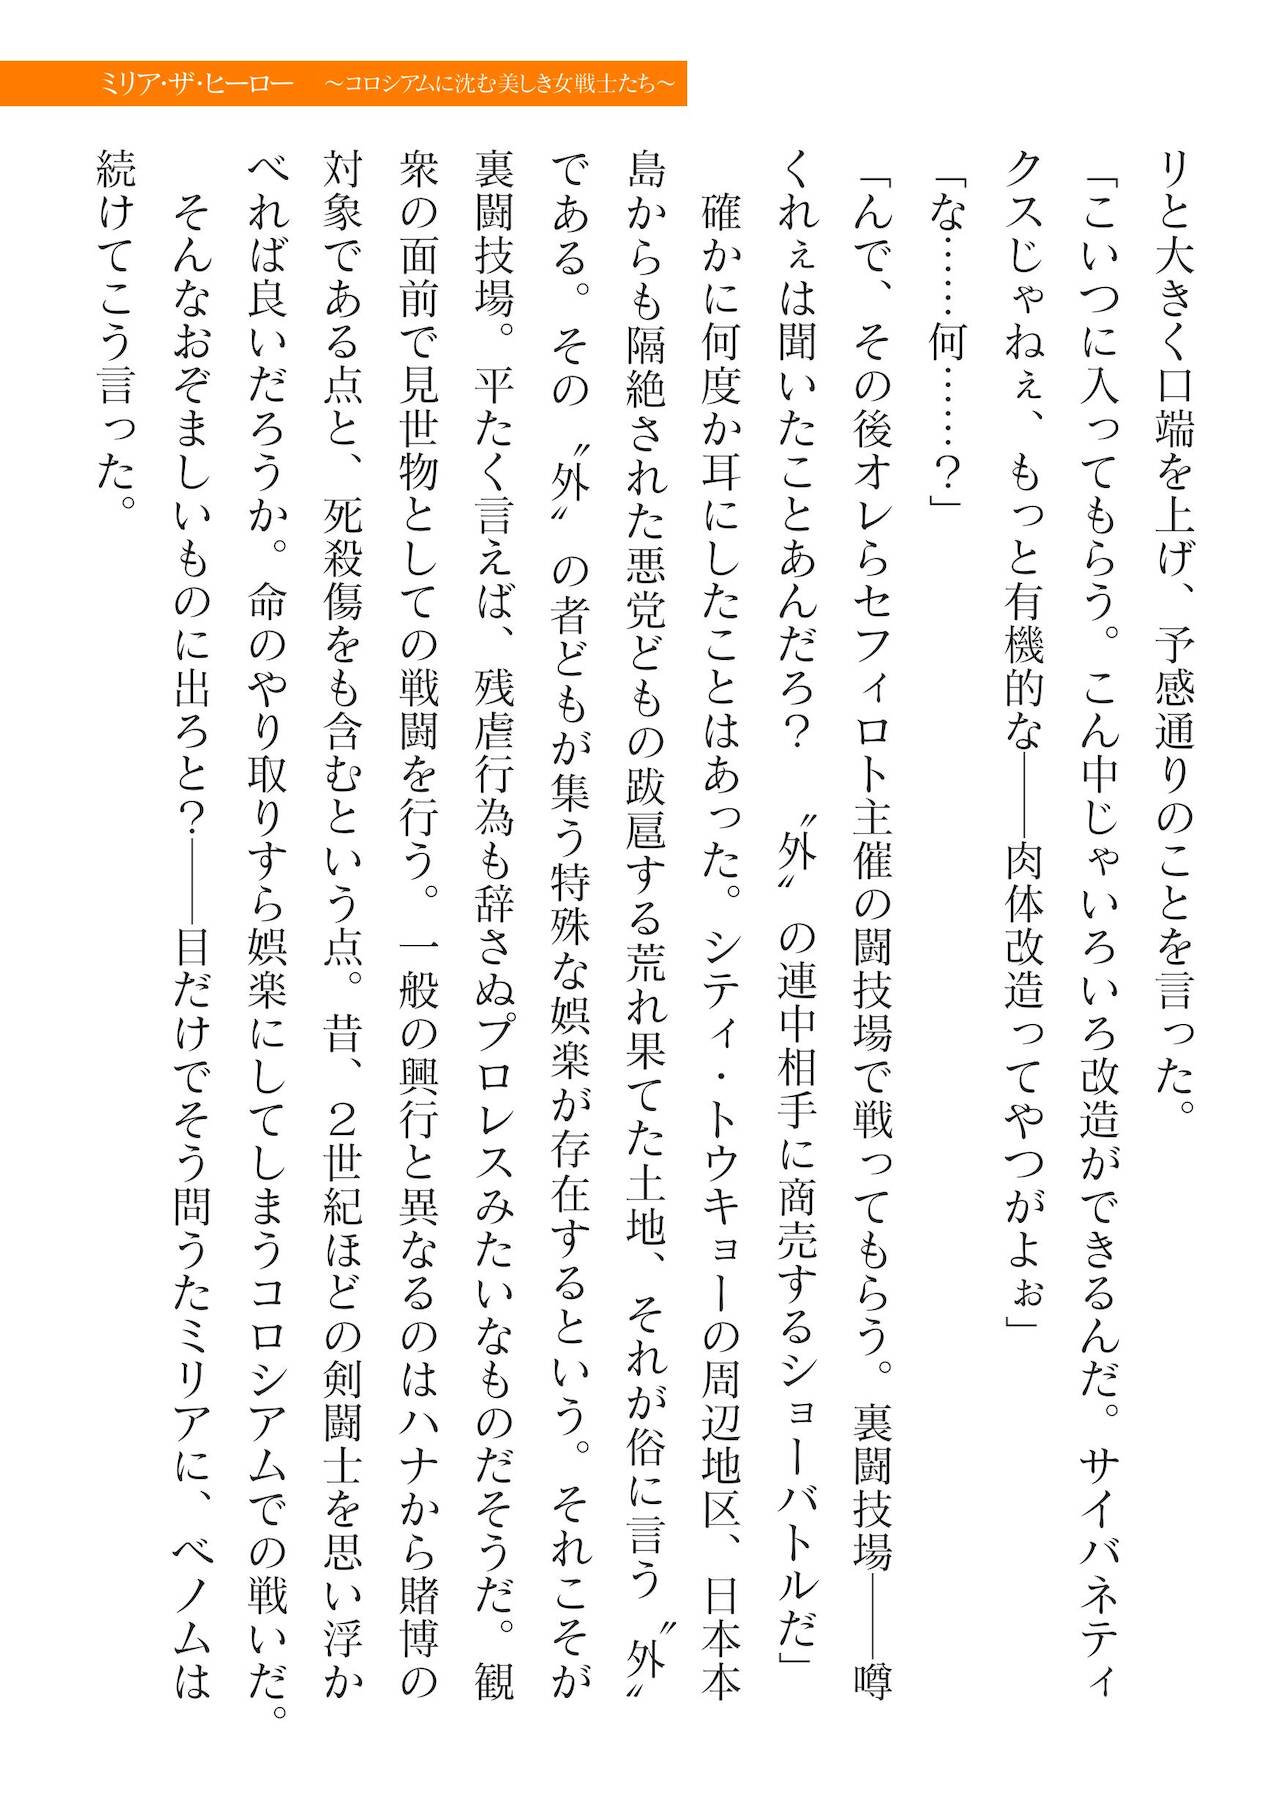 ミリア・ザ・ヒーロー　～コロシアムに沈む美しき女戦士たち～
リと大きく口端を上げ、予感通りのことを言った。
「こいつに入ってもらう。こん中じゃいろいろ改造ができるんだ。サイバネティ
クスじゃねぇ、もっと有機的な――肉体改造ってやつがよぉ」
「な……何……？」
「んで、その後オレらセフィロト主催の闘技場で戦ってもらう。裏闘技場――噂
くれぇは聞いたことあんだろ？　〝外〟の連中相手に商売するショーバトルだ」
　確かに何度か耳にしたことはあった。シティ・トウキョーの周辺地区、日本本
島からも隔絶された悪党どもの跋扈する荒れ果てた土地、それが俗に言う〝外〟
である。その〝外〟の者どもが集う特殊な娯楽が存在するという。それこそが
裏闘技場。平たく言えば、残虐行為も辞さぬプロレスみたいなものだそうだ。観
衆の面前で見世物としての戦闘を行う。一般の興行と異なるのはハナから賭博の
対象である点と、死殺傷をも含むという点。昔、２世紀ほどの剣闘士を思い浮か
べれば良いだろうか。命のやり取りすら娯楽にしてしまうコロシアムでの戦いだ。
　そんなおぞましいものに出ろと？――目だけでそう問うたミリアに、ベノムは
続けてこう言った。